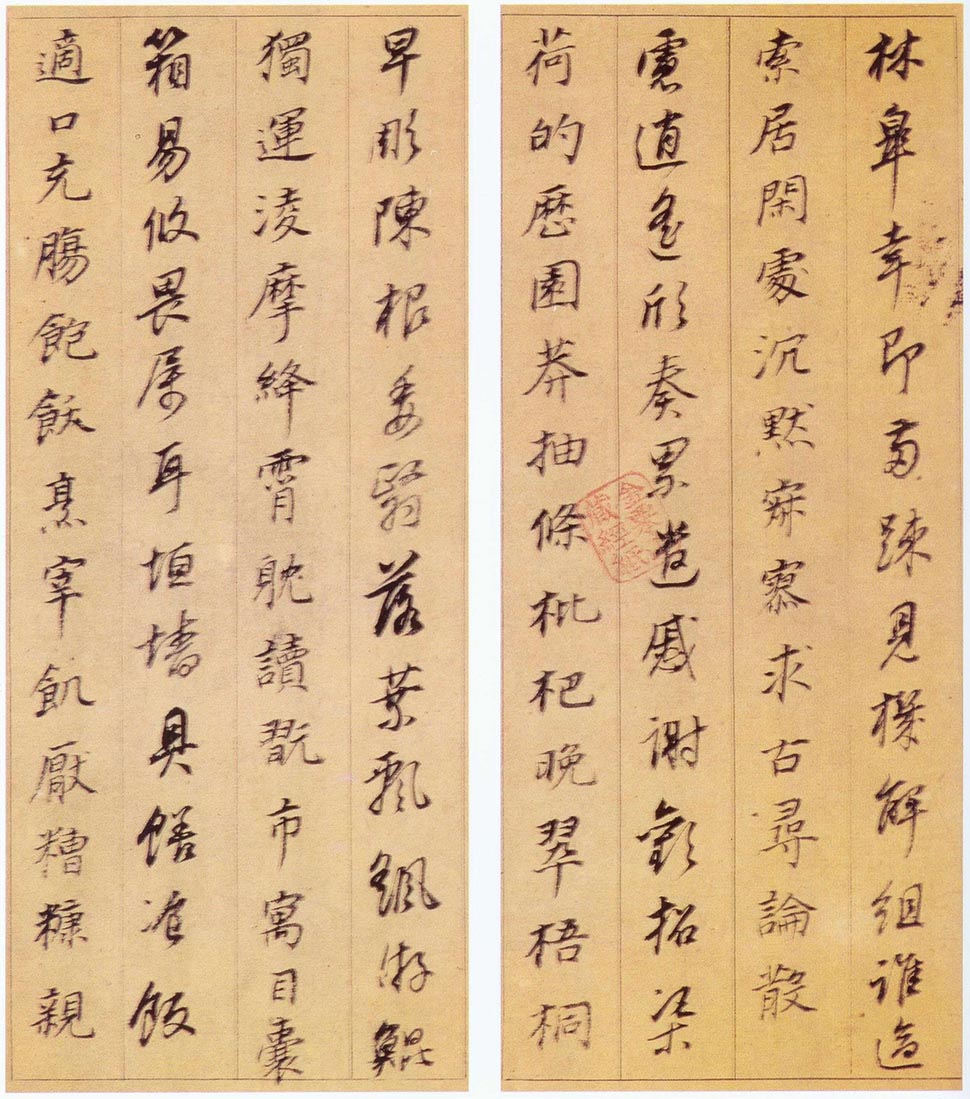 林皐幸即兩疎見機解組誰逼
索居閑處沉默寂寥求古尋論散
慮逍遙欣奏累遣慼謝歡招渠
荷的歷園莽抽條枇杷晚翠梧桐
早彫陳根委翳落葉飄颻游鯤
獨運淩摩絳霄躭讀翫市寓目囊
箱易攸畏属耳垣墻具膳飡飯
適口充腸飽飫烹宰飢厭糟糠親
金粟山藏經紙